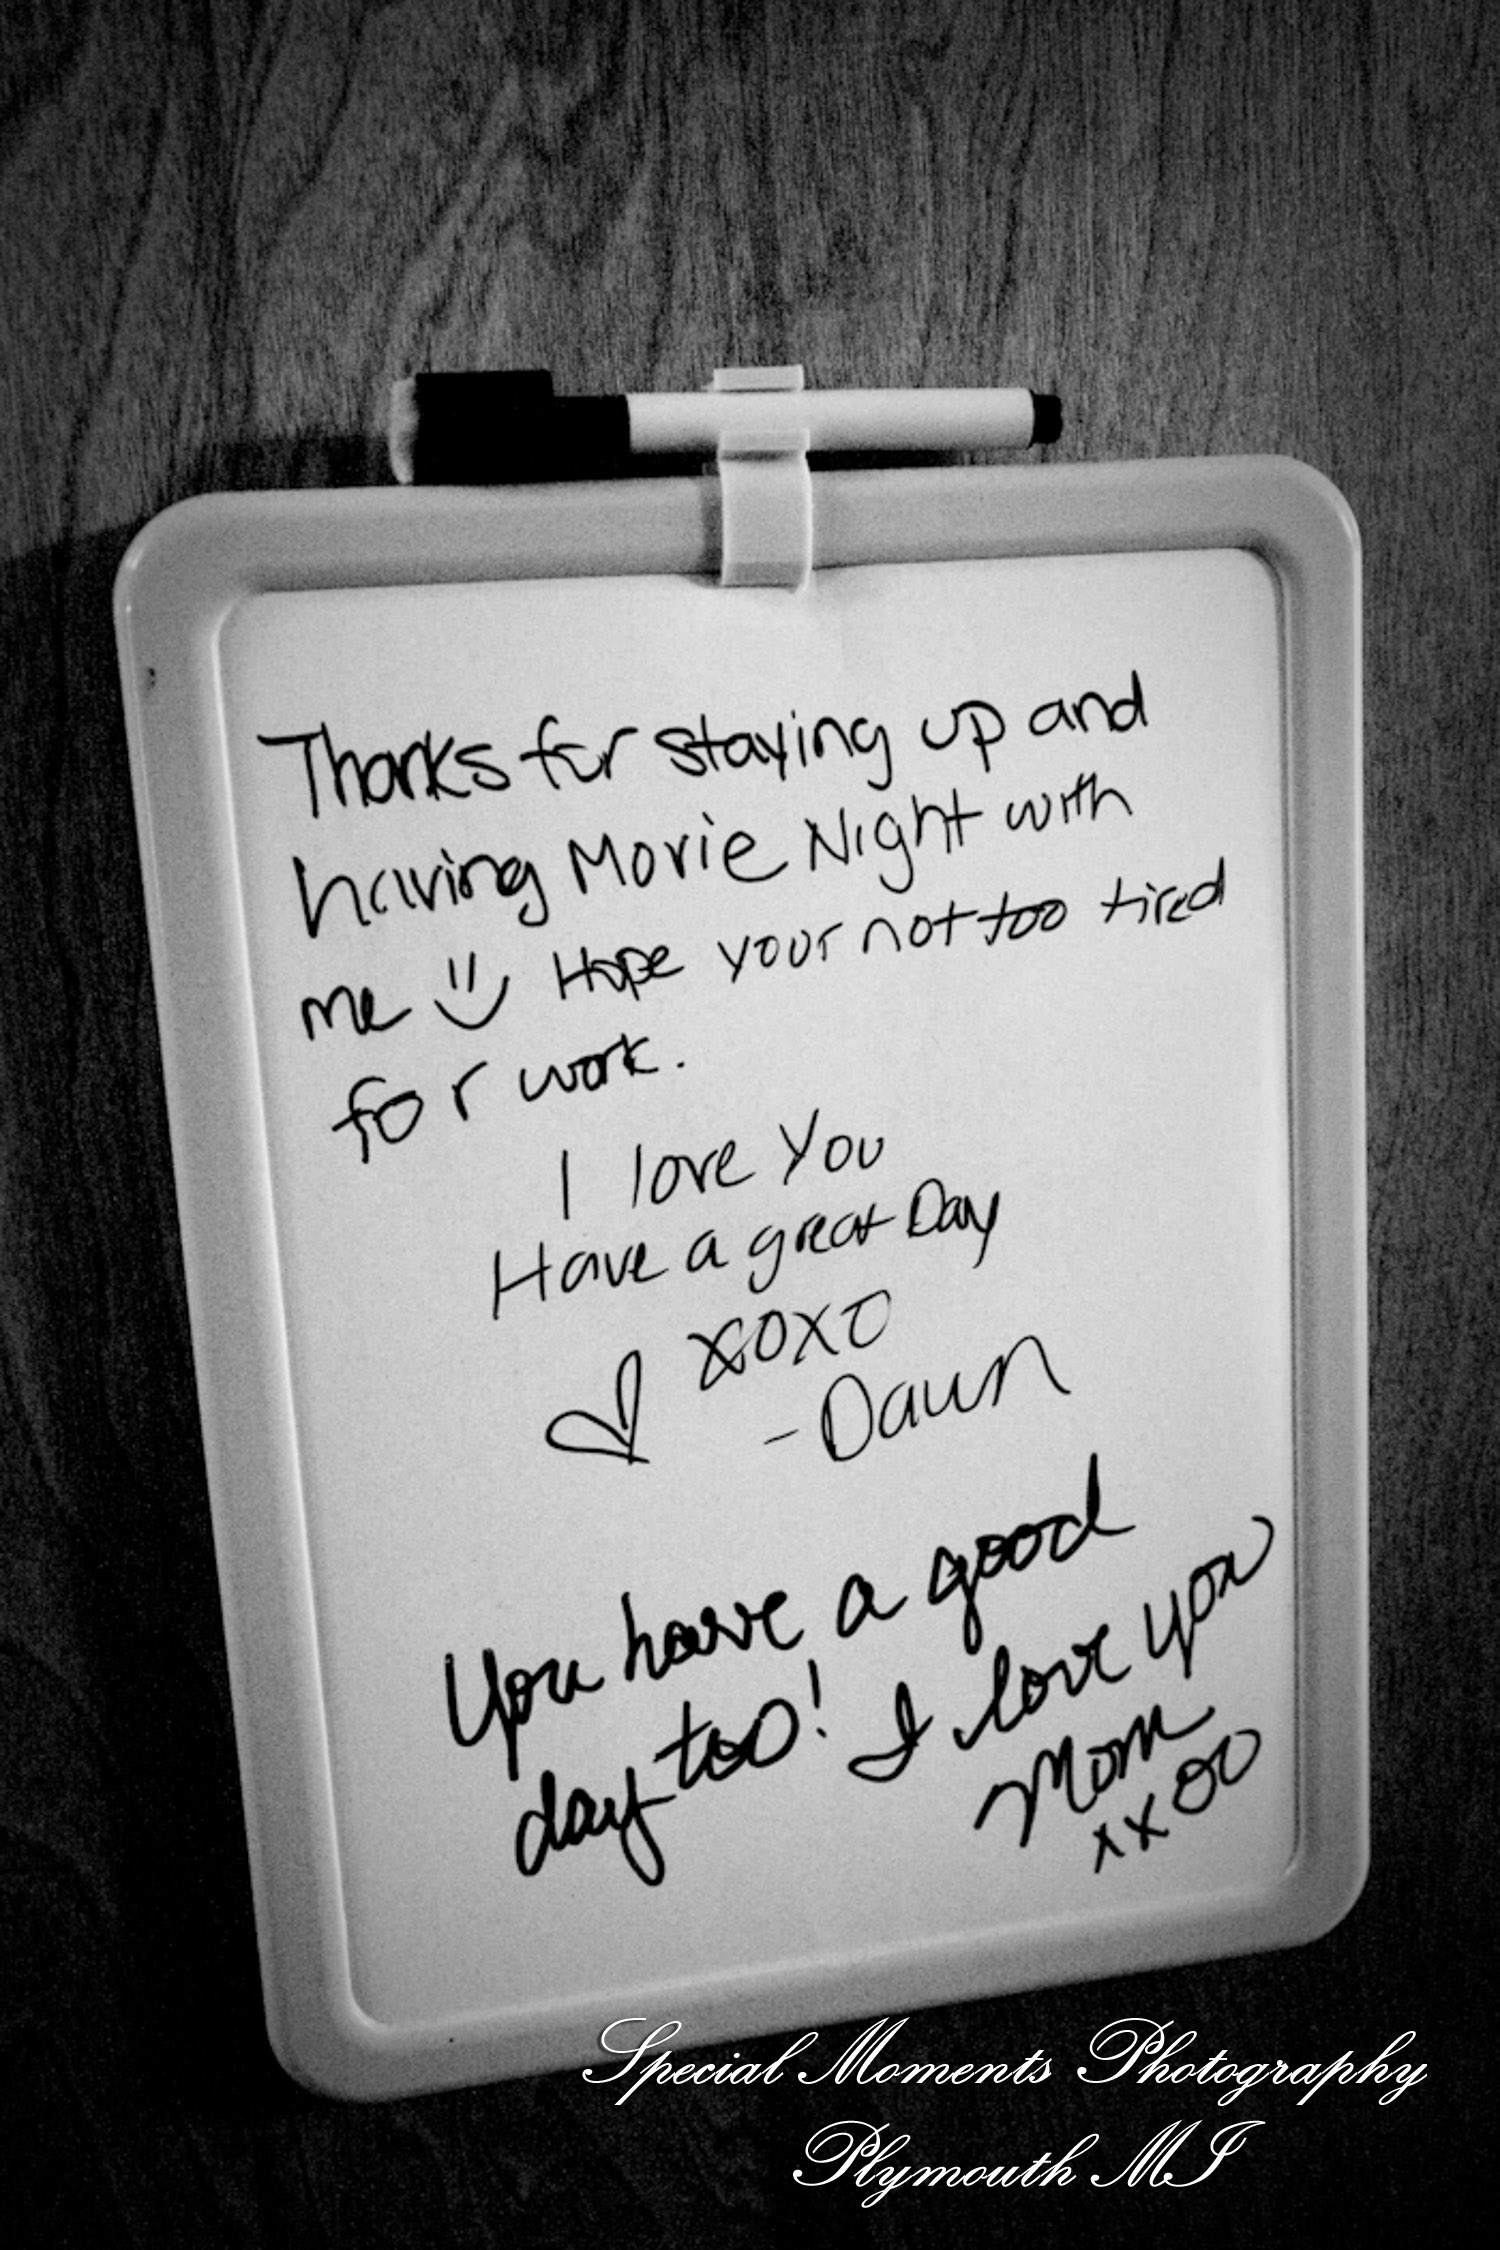 Thanks for staying up and
having Movie Night with
me Hope your not too tired
for work.
I love You
Have a great Day
xoxo
-Dawn
You have a good
day too! I love you
Mom
xxoo
Special Moments Photography
Plymouth MI